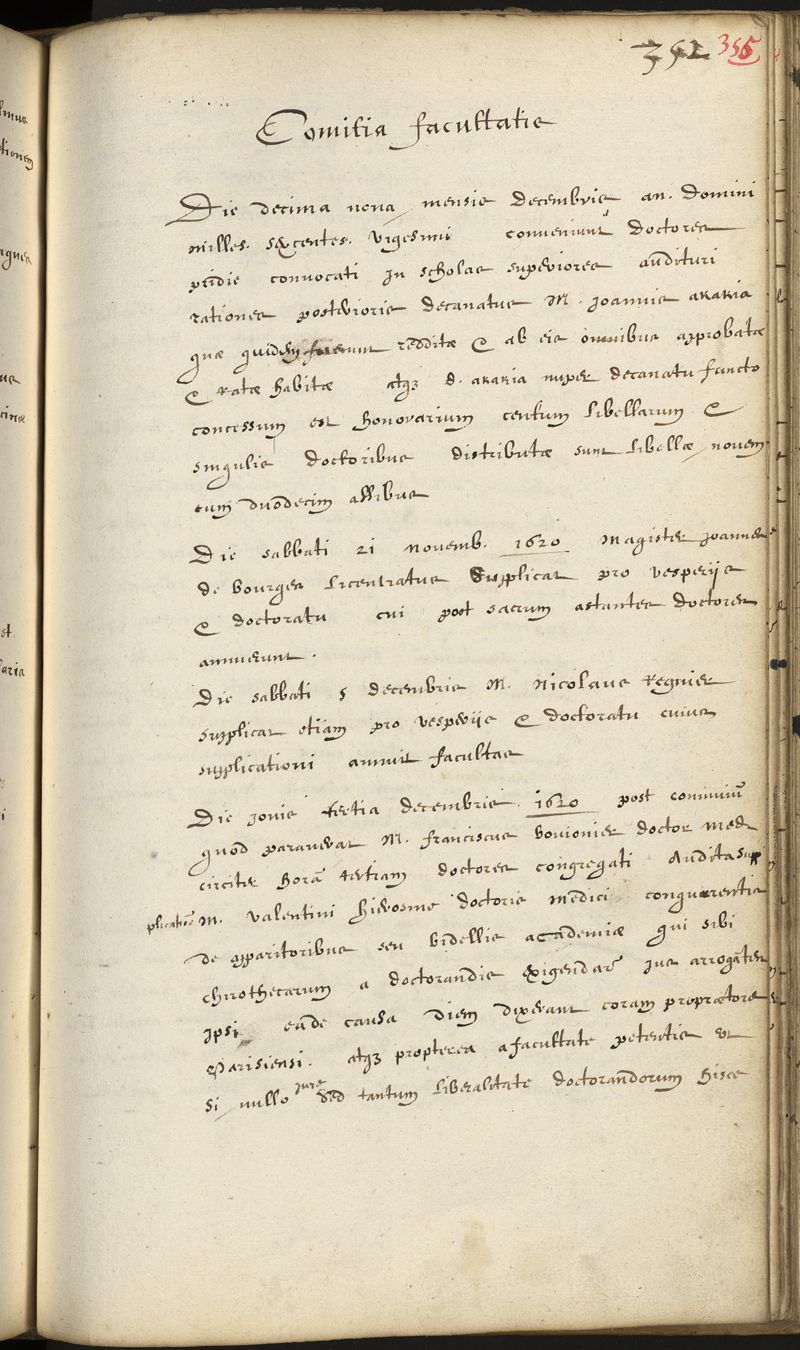 352 356
Comitia facultatis
Die decima nona mensis decembris an. Domini
milles. sexcentes. vigesimi conveniunt doctores
pridie convocati in scholas superiores audituri
rationes posterioris decanatus M. Joannis akakia
quæ quidem fuerunt redditæ & ab eis omnibus approbatæ
& ratæ habitæ atq3 d. akakia nuper decanatu functo
concessum est honorarium centum libellarum &
singulis doctoribus distributæ sunt libellæ novem
cum duodecim assibus
Die sabbati 21 novemb. 1620 Magister Joannes
de bourges licentiatus supplicat pro vesperijs
& doctoratu cui post sacrum astantes doctores
annuerunt.
Die sabbati 5 decembris M. Nicolaus Regnier
supplicat etiam pro vesperijs & doctoratu cuius
supplicationi annuit facultas
Die jovis tertia decembris 1620 post conviviū
quod paraverat M. franciscus bovionier doctor med
circiter horā tertiam doctores congregati Audita sup
plicatiōe M. valentini hierosme doctoris medici conquerentis
de apparitoribus seu bidellis academiæ qui sibi
chirothecarum a doctorandis exigendarū jus arrogātes
ipsi eāde causa diem dixerant coram proprætore
parisiensi. atq3 propterea a facultate petentis ut
si nullo jure sed tantum liberalitate doctorandorum hisce